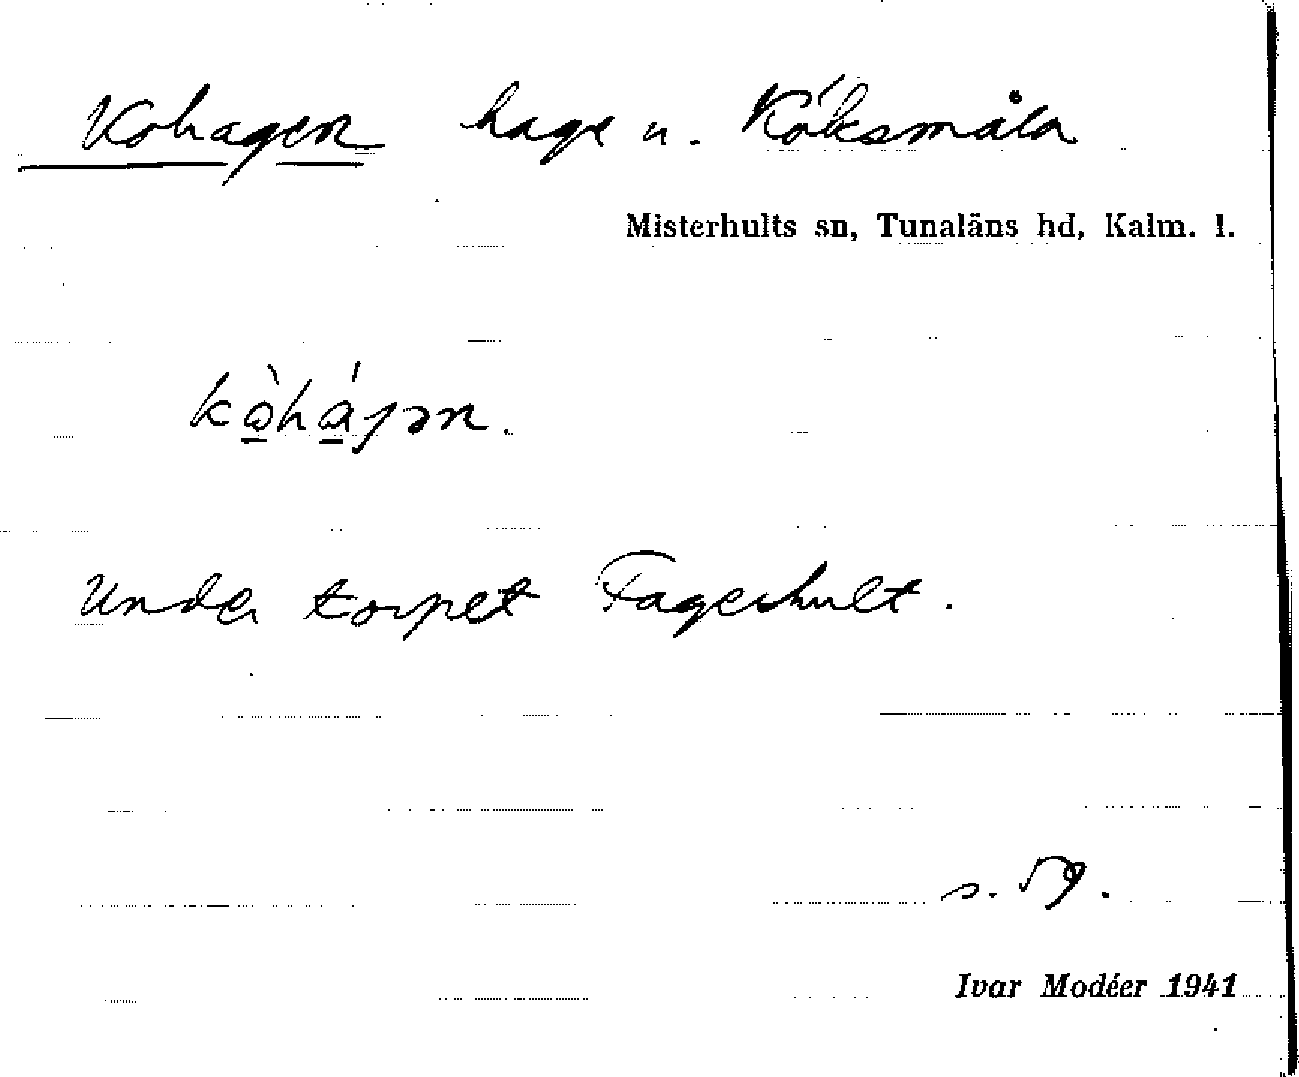 Kohagen hage u. Köksmåla
Misterhults sn, Tunaläns hd, Kalm. l.
kò̱há̱jən.
Under torpet Fagerhult.
s. 59.
Ivar Modéer 1941